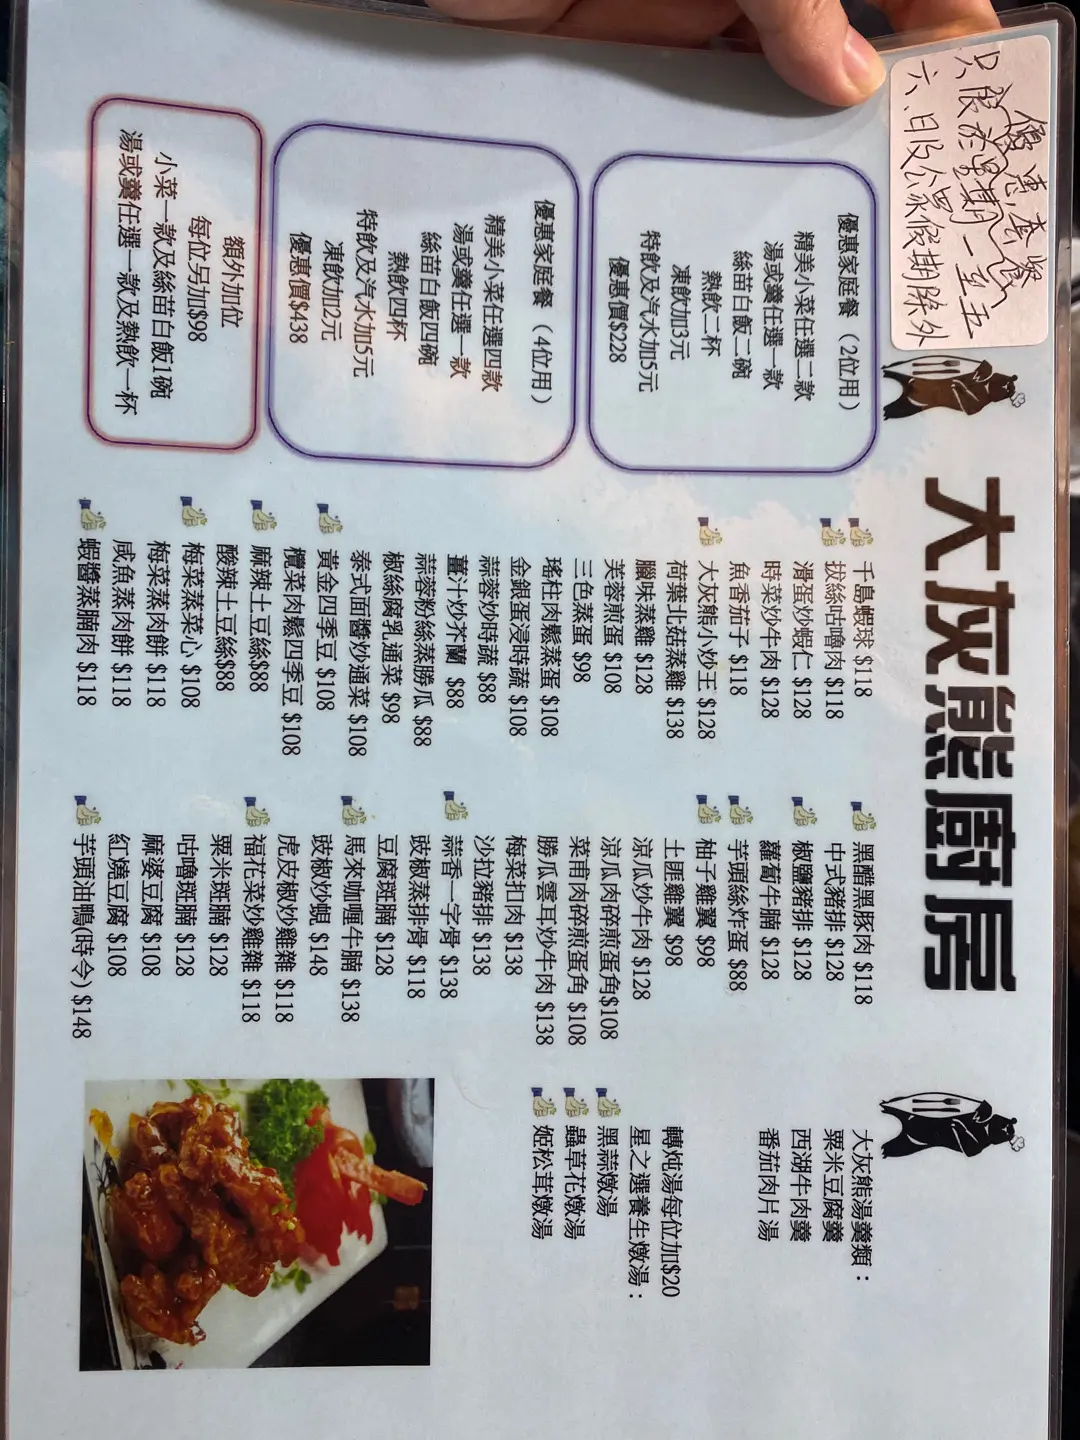 優惠套餐
只限於星期一至五
六、日及公眾假期除外
大灰熊廚房
優惠家庭餐（2位用）
精美小菜任選二款
湯或羹任選一款
絲苗白飯二碗
熱飲二杯
凍飲加3元
特飲及汽水加5元
優惠價$228
優惠家庭餐（4位用）
精美小菜任選四款
湯或羹任選一款
絲苗白飯四碗
熱飲四杯
特飲及汽水加5元
凍飲加2元
優惠價$438
額外加位
每位另加$98
小菜一款及絲苗白飯1碗
湯或羹任選一款及熱飲一杯
千島蝦球 $118
拔絲咕嚕肉 $118
滑蛋炒蝦仁 $128
時菜炒牛肉 $128
魚香茄子 $118
大灰熊小炒王 $128
荷葉北菇蒸雞 $138
臘味蒸雞 $128
芙蓉煎蛋 $108
三色蒸蛋 $98
瑤柱肉鬆蒸蛋 $108
金銀蛋浸時蔬 $108
蒜蓉炒時蔬 $88
薑汁炒芥蘭 $88
蒜蓉粉絲蒸勝瓜 $88
椒絲腐乳通菜 $98
泰式面醬炒通菜 $108
黃金四季豆 $108
欖菜肉鬆四季豆 $108
麻辣土豆絲$88
酸辣土豆絲$88
梅菜蒸菜心 $108
梅菜蒸肉餅 $118
咸魚蒸肉餅 $118
蝦醬蒸腩肉 $118
黑醋黑豚肉 $118
中式豬排 $128
椒鹽豬排 $128
蘿蔔牛腩 $128
芋頭絲炸蛋 $88
柚子雞翼 $98
土匪雞翼 $98
涼瓜炒牛肉 $128
涼瓜肉碎煎蛋角$108
菜甫肉碎煎蛋角 $108
勝瓜雲耳炒牛肉 $138
梅菜扣肉 $138
沙拉豬排 $138
蒜香一字骨 $138
豉椒蒸排骨 $118
豆腐斑腩 $128
馬來咖喱牛腩 $138
豉椒炒蜆 $148
虎皮椒炒雞雜 $118
福花菜炒雞雜 $118
粟米斑腩 $128
咕嚕斑腩 $128
麻婆豆腐 $108
紅燒豆腐 $108
芋頭油鴨(時令) $148
大灰熊湯羹類：
粟米豆腐羹
西湖牛肉羹
番茄肉片湯
轉炖湯每位加$20
星之選養生燉湯：
黑蒜燉湯
蟲草花燉湯
姬松茸燉湯